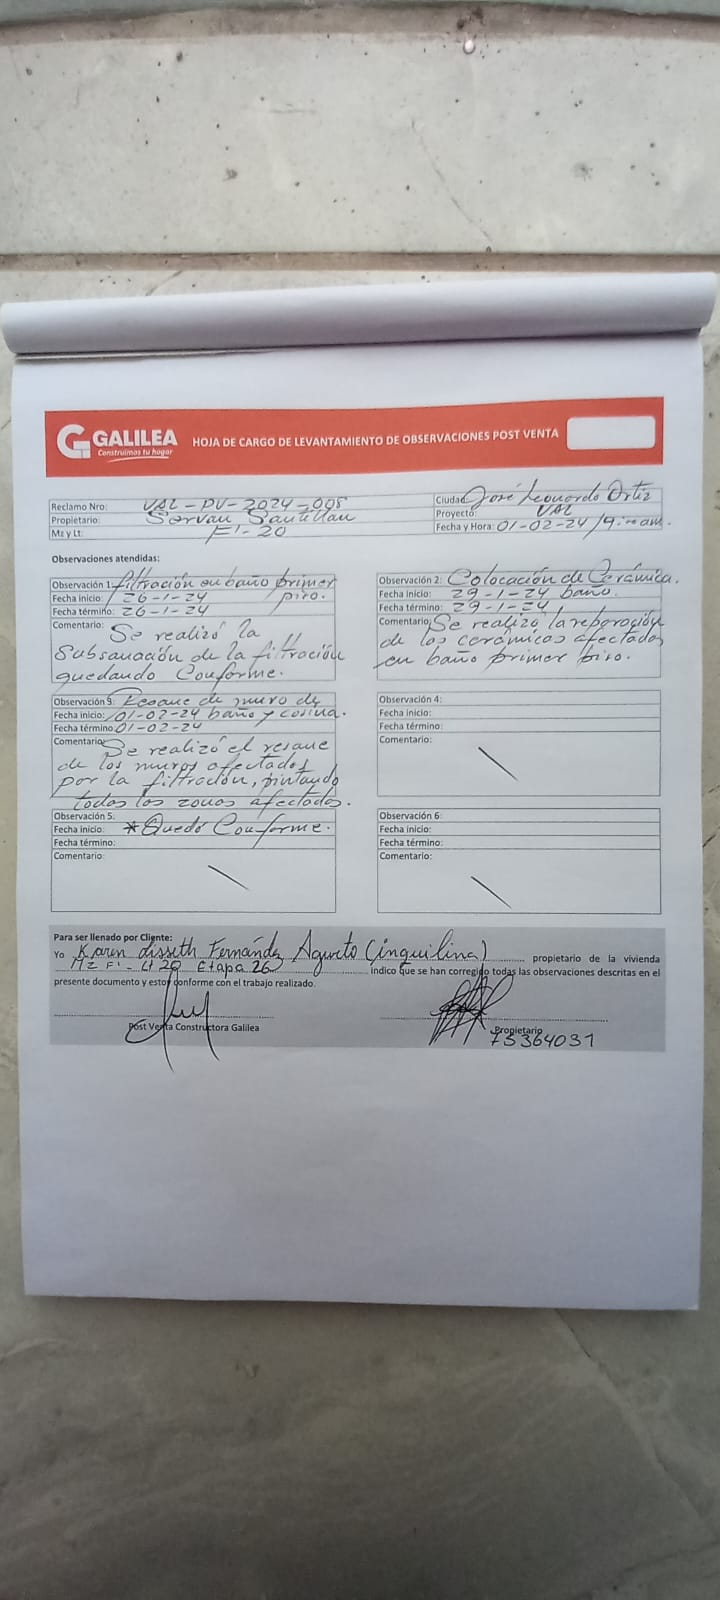 GALILEA
Construimos tu hogar
HOJA DE CARGO DE LEVANTAMIENTO DE OBSERVACIONES POST VENTA
Reclamo Nro: VAL-PV-2024-008
Propietario: Servan Santillan
Mz y Lt: F'-20
Ciudad: José Leonardo Ortiz
Proyecto: VAL
Fecha y Hora: 01-02-24 / 9:00am.
Observaciones atendidas:
Observación 1: filtración en baño primer
Fecha inicio: 26-1-24 piso.
Fecha término: 26-1-24
Comentario: Se realizó la
Subsanación de la filtración
quedando Conforme.
Observación 2: Colocación de Cerámica.
Fecha inicio: 29-1-24 baño.
Fecha término: 29-1-24
Comentario: Se realizó la reparación
de los cerámicos afectados
en baño primer piso.
Observación 3: Resane de muro de
Fecha inicio: 01-02-24 baño y cosina.
Fecha término: 01-02-24
Comentario: Se realizó el resane
de los muros afectados
por la filtración, pintando
todas las zonas afectadas.
Observación 4:
Fecha inicio:
Fecha término:
Comentario:
Observación 5:
Fecha inicio: * Quedó Conforme.
Fecha término:
Comentario:
Observación 6:
Fecha inicio:
Fecha término:
Comentario:
Para ser llenado por Cliente:
Yo Karen Lisseth Fernández Agurto (inquilina) propietario de la vivienda
Mz F' - Lt 20 Etapa 26 indico que se han corregido todas las observaciones descritas en el
presente documento y estoy conforme con el trabajo realizado.
Post Venta Constructora Galilea
Propietario
75364031